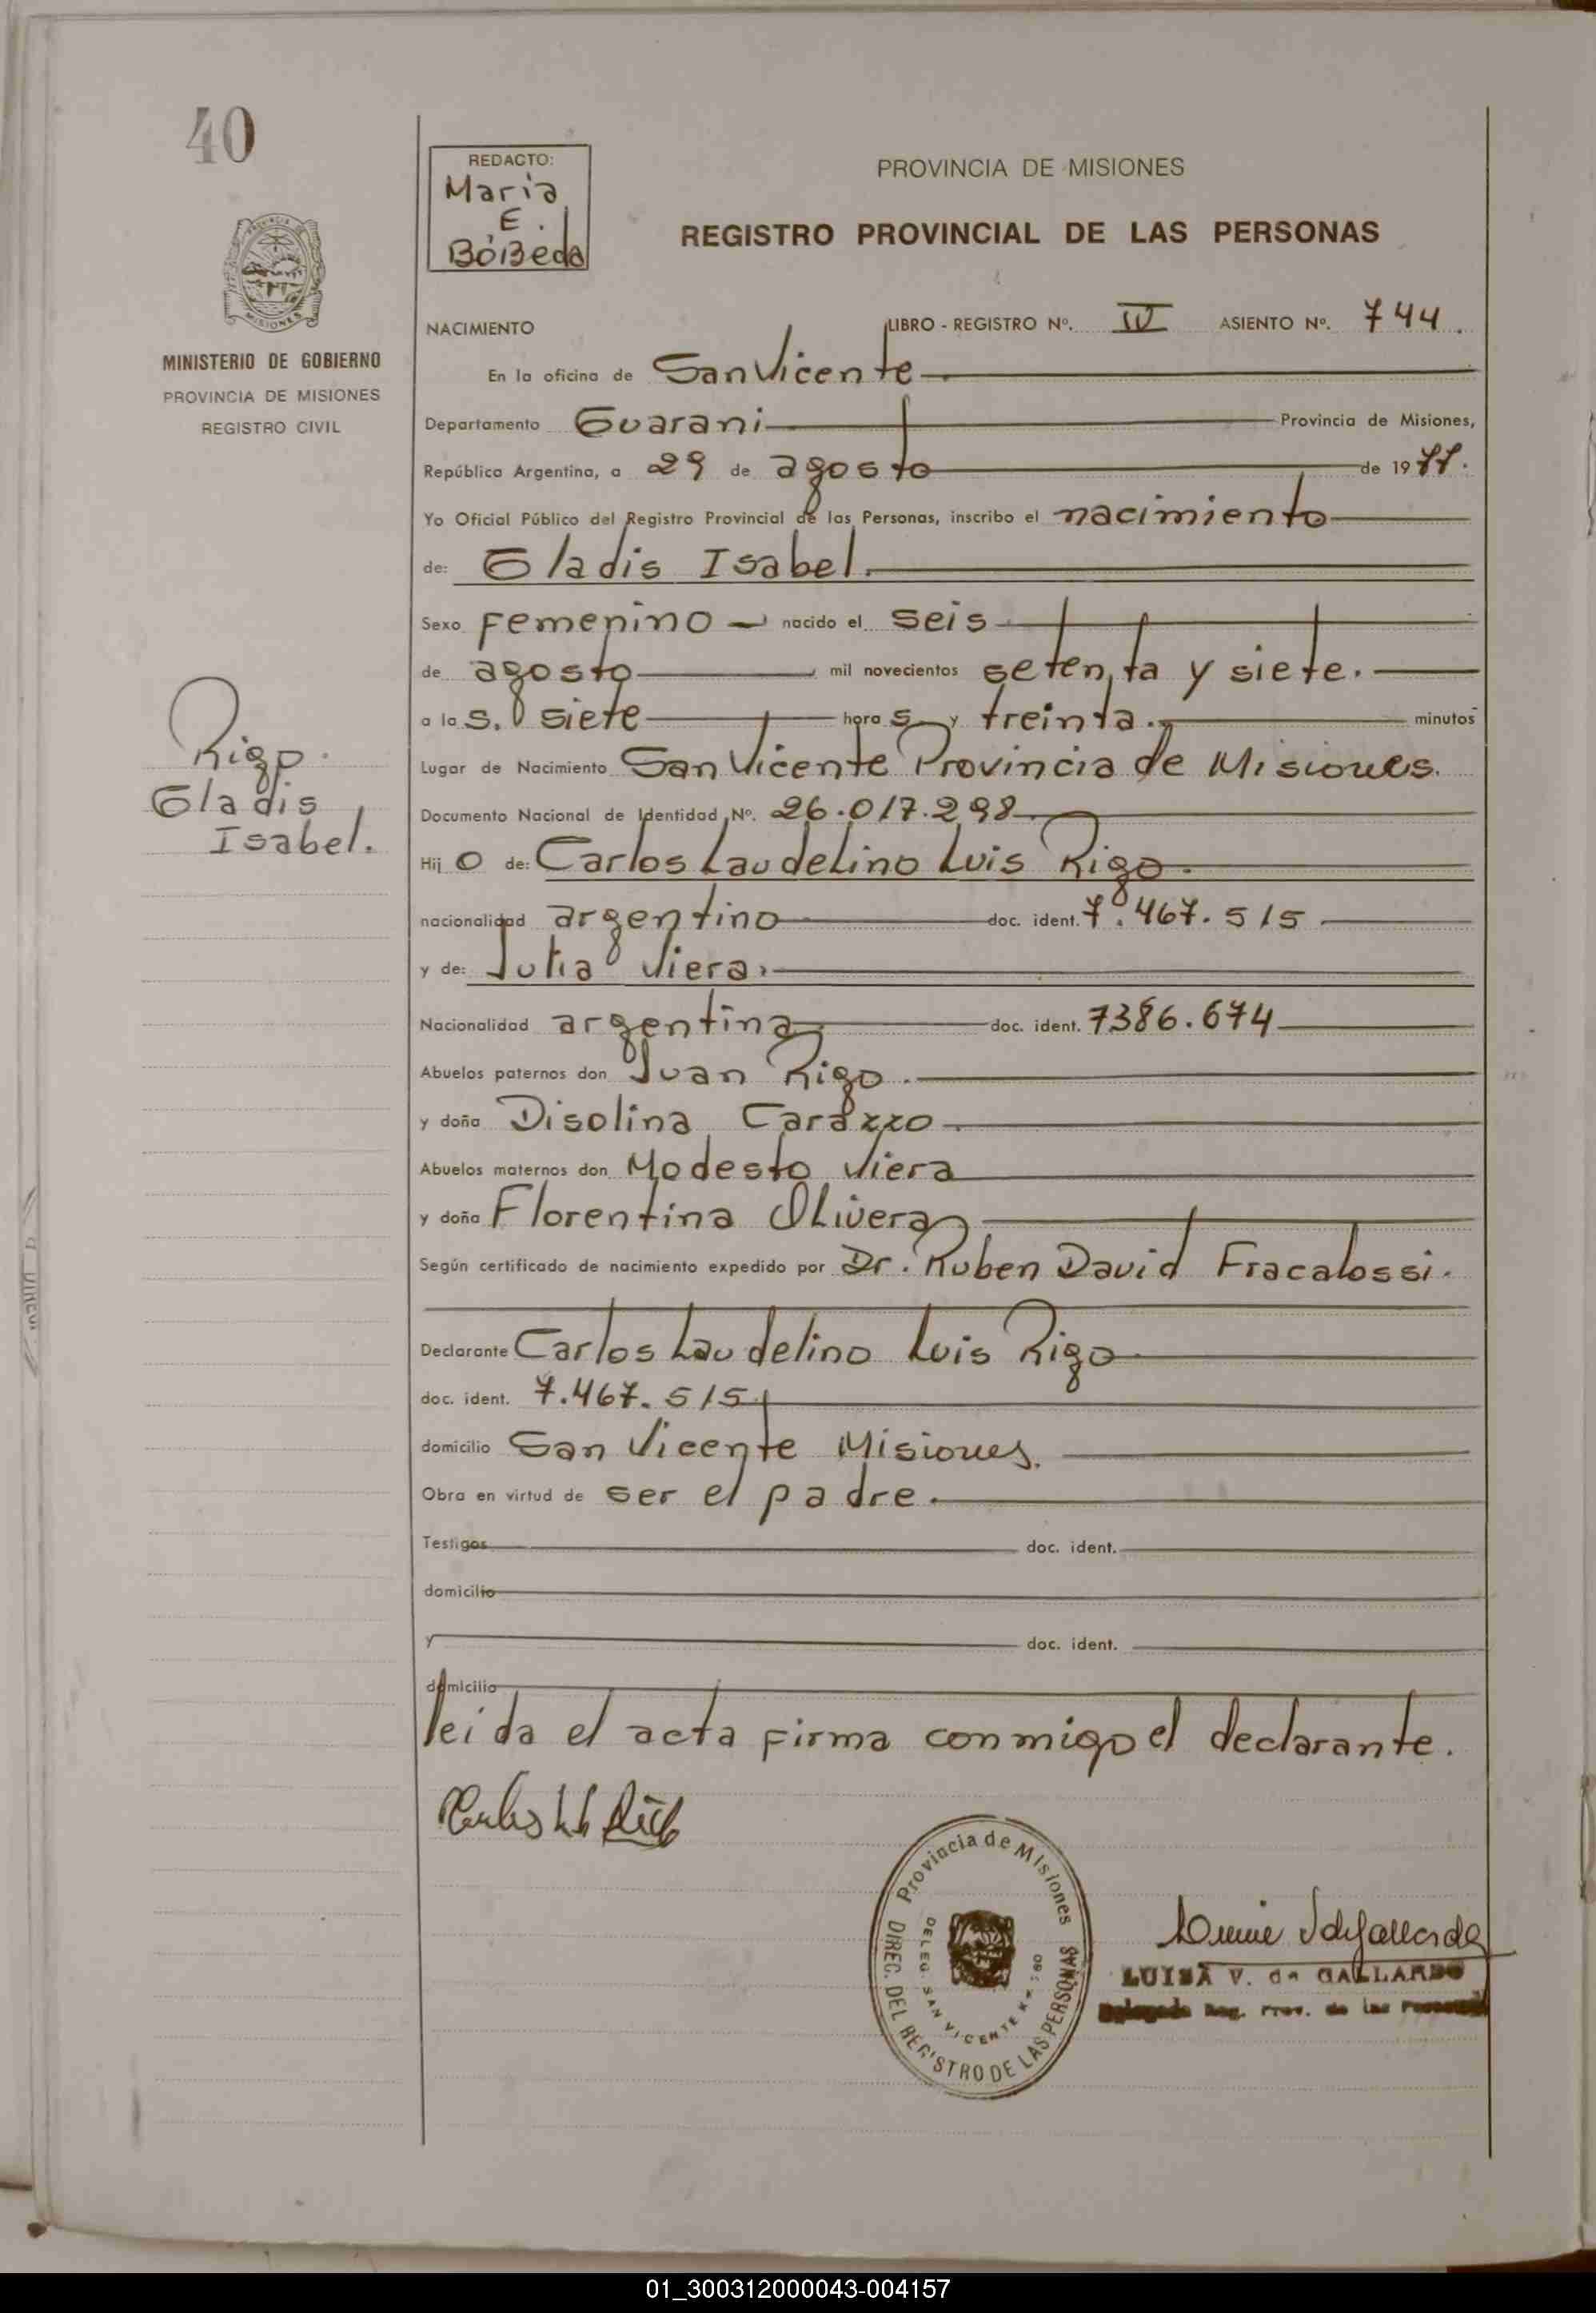 40
REDACTO:
Maria
E.
Bóbeda
PROVINCIA DE MISIONES
REGISTRO PROVINCIAL DE LAS PERSONAS
MISIONES
MINISTERIO DE GOBIERNO
PROVINCIA DE MISIONES
REGISTRO CIVIL
NACIMIENTO LIBRO - REGISTRO Nº. IV ASIENTO Nº. 744.
En la oficina de San Vicente
Departamento Guarani Provincia de Misiones,
República Argentina, a 29 de agosto de 1977.
Yo Oficial Público del Registro Provincial de las Personas, inscribo el nacimiento
de: Gladis Isabel.
Sexo femenino nacido el seis
de agosto mil novecientos setenta y siete.
a las. siete horas y treinta. minutos
Lugar de Nacimiento San Vicente Provincia de Misiones.
Documento Nacional de Identidad Nº. 26.017.298
Hijo de: Carlos Laudelino Luis Rigo.
nacionalidad argentino doc. ident. 7.467.515
y de: Julia Viera.
Nacionalidad argentina doc. ident. 7386.674
Abuelos paternos don Juan Rigo.
y doña Disolina Carazzo.
Abuelos maternos don Modesto Viera
y doña Florentina Olivera
Según certificado de nacimiento expedido por Dr. Ruben David Fracalossi.
Declarante Carlos Laudelino Luis Rigo
doc. ident. 7.467.515
domicilio San Vicente Misiones.
Obra en virtud de ser el padre.
Testigos doc. ident.
domicilio
y doc. ident.
domicilio
leida el acta firma conmigo el declarante.
Rigo.
Gladis
Isabel.
Provincia de Misiones
DIREC. DEL REGISTRO DE LAS PERSONAS
DELEG. SAN VICENTE
LUISA V. de GALLARDO
Delegada Reg. Prov. de las Personas
01_300312000043-004157